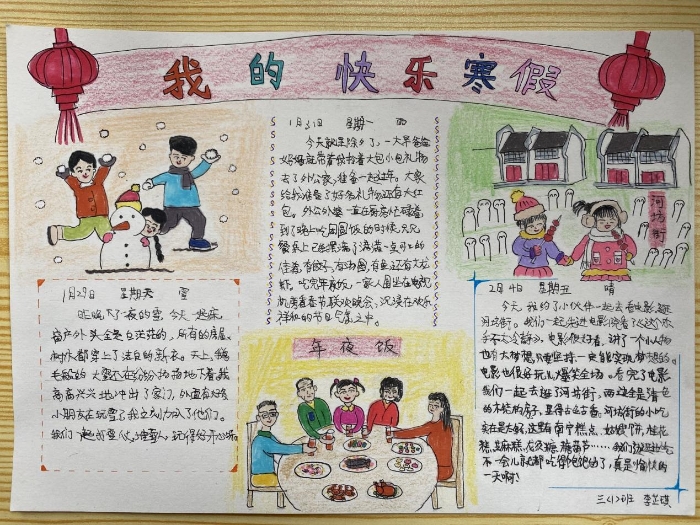 我的快乐寒假
1月29日 星期天 雪
昨晚下了一夜的雪,今天一起床,
窗户外头全是白茫茫的,所有的房屋、
树木都穿上了洁白的新衣。天上,鹅
毛般的大雪还在纷纷扬扬地下着,我
高高兴兴地冲出了家门,外面有好多
小朋友在玩雪了我立刻加入了他们。
我们一起打雪仗,堆雪人,玩得好开心呀
1月31日 星期一 雨
今天就是除夕了,一大早爸爸
妈妈就带着我拎着大包小包礼物
去了外公家,准备一起过年。大家
给我准备了好多礼物还有大红
包。外公外婆一直在厨房忙碌着
到了晚上吃团圆饭的时候,只见
餐桌上已经摆满了满满一桌可口的
佳肴,有饺子,有汤圆,有鱼还有大龙
虾。吃完年夜饭,一家人围坐在电视
机旁看春节联欢晚会,沉浸在欢乐
祥和的节日气氛之中。
年夜饭
河坊街
2月4日 星期五 晴
今天,我约了小伙伴一起去看电影,逛
河坊街。我们一起先进电影院看了《这个杀
手不太冷静》,电影很好看,讲了一个小人物
也有大梦想,只要坚持一定能实现梦想的
电影也很好玩儿,爆笑全场。看完了电影
我们一起去逛了河坊街,两边全是清一色
的木结构房子,显得古色古香,河坊街的小吃
实在是太多,这里有南宁糕点、姑嫂饼、桂花
糕、麻酥糖、定胜糕、糖葫芦……我们
不一会儿就都吃得饱饱的了,真是愉快的
一天啊!
三(1)班 李芷琪